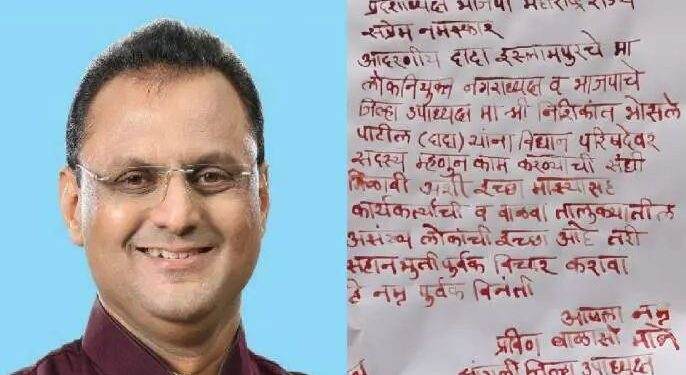 प्रदेशाध्यक्ष भाजपा महाराष्ट्र राज्य
सप्रेम नमस्कार
आदरणीय दादा इस्लामपुरचे मा
लोकनियुक्त नगराध्यक्ष व भाजपाचे
जिल्हा उपाध्यक्ष मा श्री निशिकांत भोसले
पाटील (दादा) यांना विधान परिषदेवर
सदस्य म्हणून काम करण्याची संधी
मिळावी अशी इच्छा माझ्यासह
कार्यकर्त्यांची व वाळवा तालुक्यातील
असंख्य लोकांची इच्छा आहे तरी
सहानभुती पुर्वक विचार करावा
हे नम्र पुर्वक विनंती
आपला नम्र
प्रविण बाळासो माने
सांगली जिल्हा उपाध्यक्ष